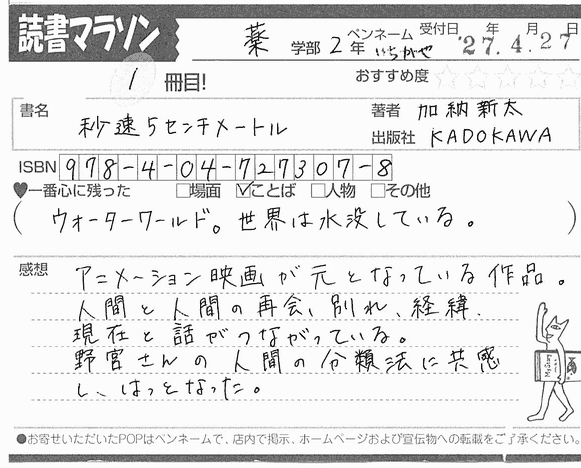 読書マラソン
薬 学部 2年 ペンネーム いちかぜ 受付日 '27.4.27 年 月 日
1 冊目! おすすめ度 ☆☆☆☆☆
書名 秒速5センチメートル
著者 加納新太
出版社 KADOKAWA
ISBN 978-4-04-727307-8
♥一番心に残った □場面 ☑ことば □人物 □その他
(ウォーターワールド。世界は水没している。)
感想 アニメーション映画が元となっている作品。
人間と人間の再会、別れ、経緯、
現在と話がつながっている。
野宮さんの人間の分類法に共感
し、はっとなった。
●お寄せいただいたPOPはペンネームで、店内で掲示、ホームページおよび宣伝物への転載をご了承ください。